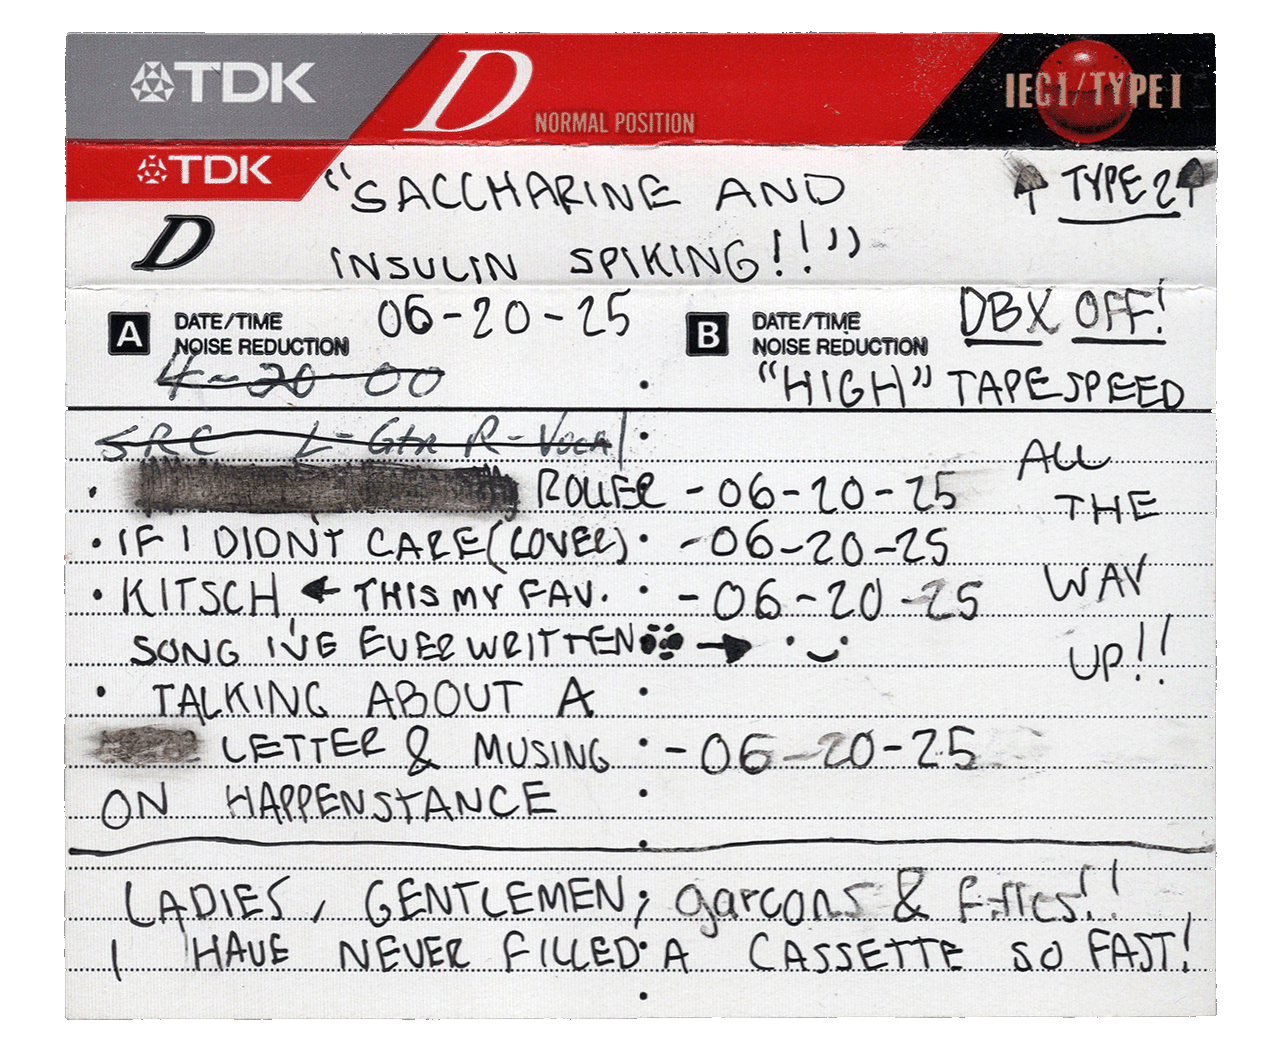 TDK D NORMAL POSITION IEC I/TYPE I
TDK "SACCHARINE AND ↑ TYPE 2 ↑
D INSULIN SPIKING!!"
A DATE/TIME 06-20-25 B DATE/TIME DBX OFF!
NOISE REDUCTION NOISE REDUCTION
4-20-00 "HIGH" TAPE SPEED
SRC L-Gtr R-Vocal
ALL
• ROLLER - 06-20-25 THE
• IF I DIDN'T CARE (COVER) - 06-20-25
• KITSCH ← THIS MY FAV. - 06-20-25 WAY
SONG I'VE EVER WRITTEN → UP!!
• TALKING ABOUT A
LETTER & MUSING - 06-20-25
ON HAPPENSTANCE
LADIES, GENTLEMEN, garcons & filles!!
I HAVE NEVER FILLED A CASSETTE SO FAST!